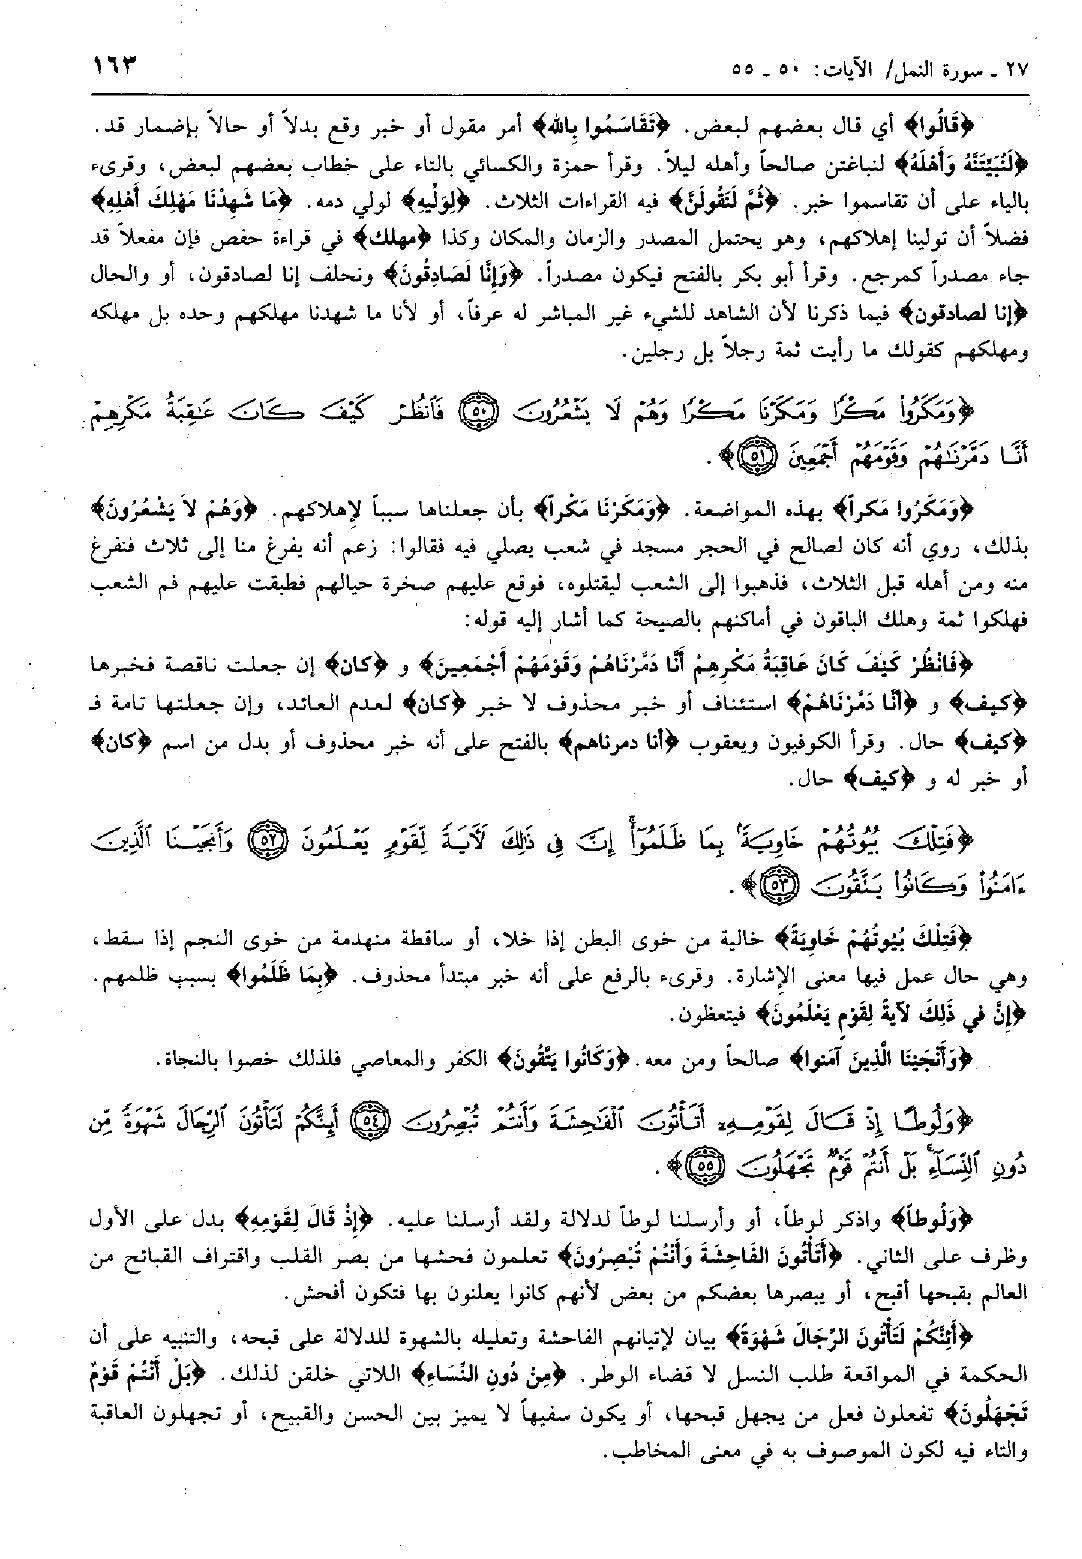 ٢٧ ـ سورة النمل/ الآيات: ٥٠ ـ ٥٥
١٦٣
﴿قَالُوا﴾ أي قال بعضهم لبعض. ﴿تَقَاسَمُوا بِالله﴾ أمر مقول أو خبر وقع بدلاً أو حالاً بإضمار قد.
﴿لَنُبَيِّتَنَّهُ وَأَهْلَهُ﴾ لنباغتن صالحاً وأهله ليلاً. وقرأ حمزة والكسائي بالتاء على خطاب بعضهم لبعض، وقرىء
بالياء على أن تقاسموا خبر. ﴿ثُمَّ لَنَقُولَنَّ﴾ فيه القراءات الثلاث. ﴿لِوَلِّيهِ﴾ لولي دمه. ﴿مَا شَهِدْنَا مَهْلِكَ أَهْلِهِ﴾
فضلاً أن تولينا إهلاكهم، وهو يحتمل المصدر والزمان والمكان وكذا ﴿مهلك﴾ في قراءة حفص فإن مفعلاً قد
جاء مصدراً كمرجع. وقرأ أبو بكر بالفتح فيكون مصدراً. ﴿وَإِنَّا لَصَادِقُونَ﴾ ونحلف إنا لصادقون، أو والحال
﴿إنا لصادقون﴾ فيما ذكرنا لأن الشاهد للشيء غير المباشر له عرفاً، أو لأنا ما شهدنا مهلكهم وحده بل مهلكه
ومهلكهم كقولك ما رأيت ثمة رجلاً بل رجلين.
﴿وَمَكَرُواْ مَكْرًا وَمَكَرْنَا مَكْرًا وَهُمْ لَا يَشْعُرُونَ ٥٠ فَٱنظُرْ كَيْفَ كَانَ عَٰقِبَةُ مَكْرِهِمْ
أَنَّا دَمَّرْنَٰهُمْ وَقَوْمَهُمْ أَجْمَعِينَ ٥١﴾.
﴿وَمَكَرُوا مَكراً﴾ بهذه المواضعة. ﴿وَمَكَرْنَا مَكْراً﴾ بأن جعلناها سبباً لإهلاكهم. ﴿وَهُمْ لاَ يَشْعُرُونَ﴾
بذلك، روي أنه كان لصالح في الحجر مسجد في شعب يصلي فيه فقالوا: زعم أنه يفرغ منا إلى ثلاث فنفرغ
منه ومن أهله قبل الثلاث، فذهبوا إلى الشعب ليقتلوه، فوقع عليهم صخرة حيالهم فطبقت عليهم فم الشعب
فهلكوا ثمة وهلك الباقون في أماكنهم بالصيحة كما أشار إليه قوله:
﴿فَانْظُرْ كَيْفَ كَانَ عَاقِبَةُ مَكْرِهِمْ أَنَّا دَمَّرْنَاهُمْ وَقَوْمَهُمْ أَجْمَعِينَ﴾ و ﴿كان﴾ إن جعلت ناقصة فخبرها
﴿كيف﴾ و ﴿أنَّا دَمَّرْنَاهُمْ﴾ استئناف أو خبر محذوف لا خبر ﴿كان﴾ لعدم العائد، وإن جعلتها تامة فـ
﴿كيف﴾ حال. وقرأ الكوفيون ويعقوب ﴿أنا دمرناهم﴾ بالفتح على أنه خبر محذوف أو بدل من اسم ﴿كان﴾
أو خبر له و ﴿كيف﴾ حال.
﴿فَتِلْكَ بُيُوتُهُمْ خَاوِيَةًۢ بِمَا ظَلَمُوٓاْ إِنَّ فِى ذَٰلِكَ لَأَيَةً لِّقَوْمٍ يَعْلَمُونَ ٥٢ وَأَنجَيْنَا ٱلَّذِينَ
ءَامَنُواْ وَكَانُواْ يَتَّقُونَ ٥٣﴾.
﴿فَتِلْكَ بُيُوتُهُمْ خَاوِيَةً﴾ خالية من خوى البطن إذا خلا، أو ساقطة منهدمة من خوى النجم إذا سقط،
وهي حال عمل فيها معنى الإشارة. وقرىء بالرفع على أنه خبر مبتدأ محذوف. ﴿بِمَا ظَلَمُوا﴾ بسبب ظلمهم.
﴿إِنَّ في ذَلِكَ لآيةً لِقَوْمٍ يَعْلَمُونَ﴾ فيتعظون.
﴿وَأَنْجَيْنَا الَّذِينَ آمَنوا﴾ صالحاً ومن معه. ﴿وَكَانُوا يَتَّقُونَ﴾ الكفر والمعاصي فلذلك خصوا بالنجاة.
﴿وَلُوطًا إِذْ قَالَ لِقَوْمِهِۦٓ أَتَأْتُونَ ٱلْفَٰحِشَةَ وَأَنتُمْ تُبْصِرُونَ ٥٤ أَئِنَّكُمْ لَتَأْتُونَ ٱلرِّجَالَ شَهْوَةً مِّن
دُونِ ٱلنِّسَآءِۚ بَلْ أَنتُمْ قَوْمٌ تَجْهَلُونَ ٥٥﴾.
﴿وَلُوطاً﴾ واذكر لوطاً، أو وأرسلنا لوطاً لدلالة ولقد أرسلنا عليه. ﴿إِذْ قَالَ لِقَوْمِهِ﴾ بدل على الأول
وظرف على الثاني. ﴿أَتَأْتُونَ الفَاحِشَةَ وَأَنْتُمْ تُبْصِرُونَ﴾ تعلمون فحشها من بصر القلب واقتراف القبائح من
العالم بقبحها أقبح، أو يبصرها بعضكم من بعض لأنهم كانوا يعلنون بها فتكون أفحش.
﴿أَئِنَّكُمْ لَتَأْتُونَ الرِّجَالَ شَهْوَةً﴾ بيان لإتيانهم الفاحشة وتعليله بالشهوة للدلالة على قبحه، والتنبيه على أن
الحكمة في المواقعة طلب النسل لا قضاء الوطر. ﴿مِنْ دُونِ النِّسَاءِ﴾ اللاتي خلقن لذلك. ﴿بَلْ أَنْتُمْ قَوْمٌ
تَجْهَلُونَ﴾ تفعلون فعل من يجهل قبحها، أو يكون سفيهاً لا يميز بين الحسن والقبيح، أو تجهلون العاقبة
والتاء فيه لكون الموصوف به في معنى المخاطب.